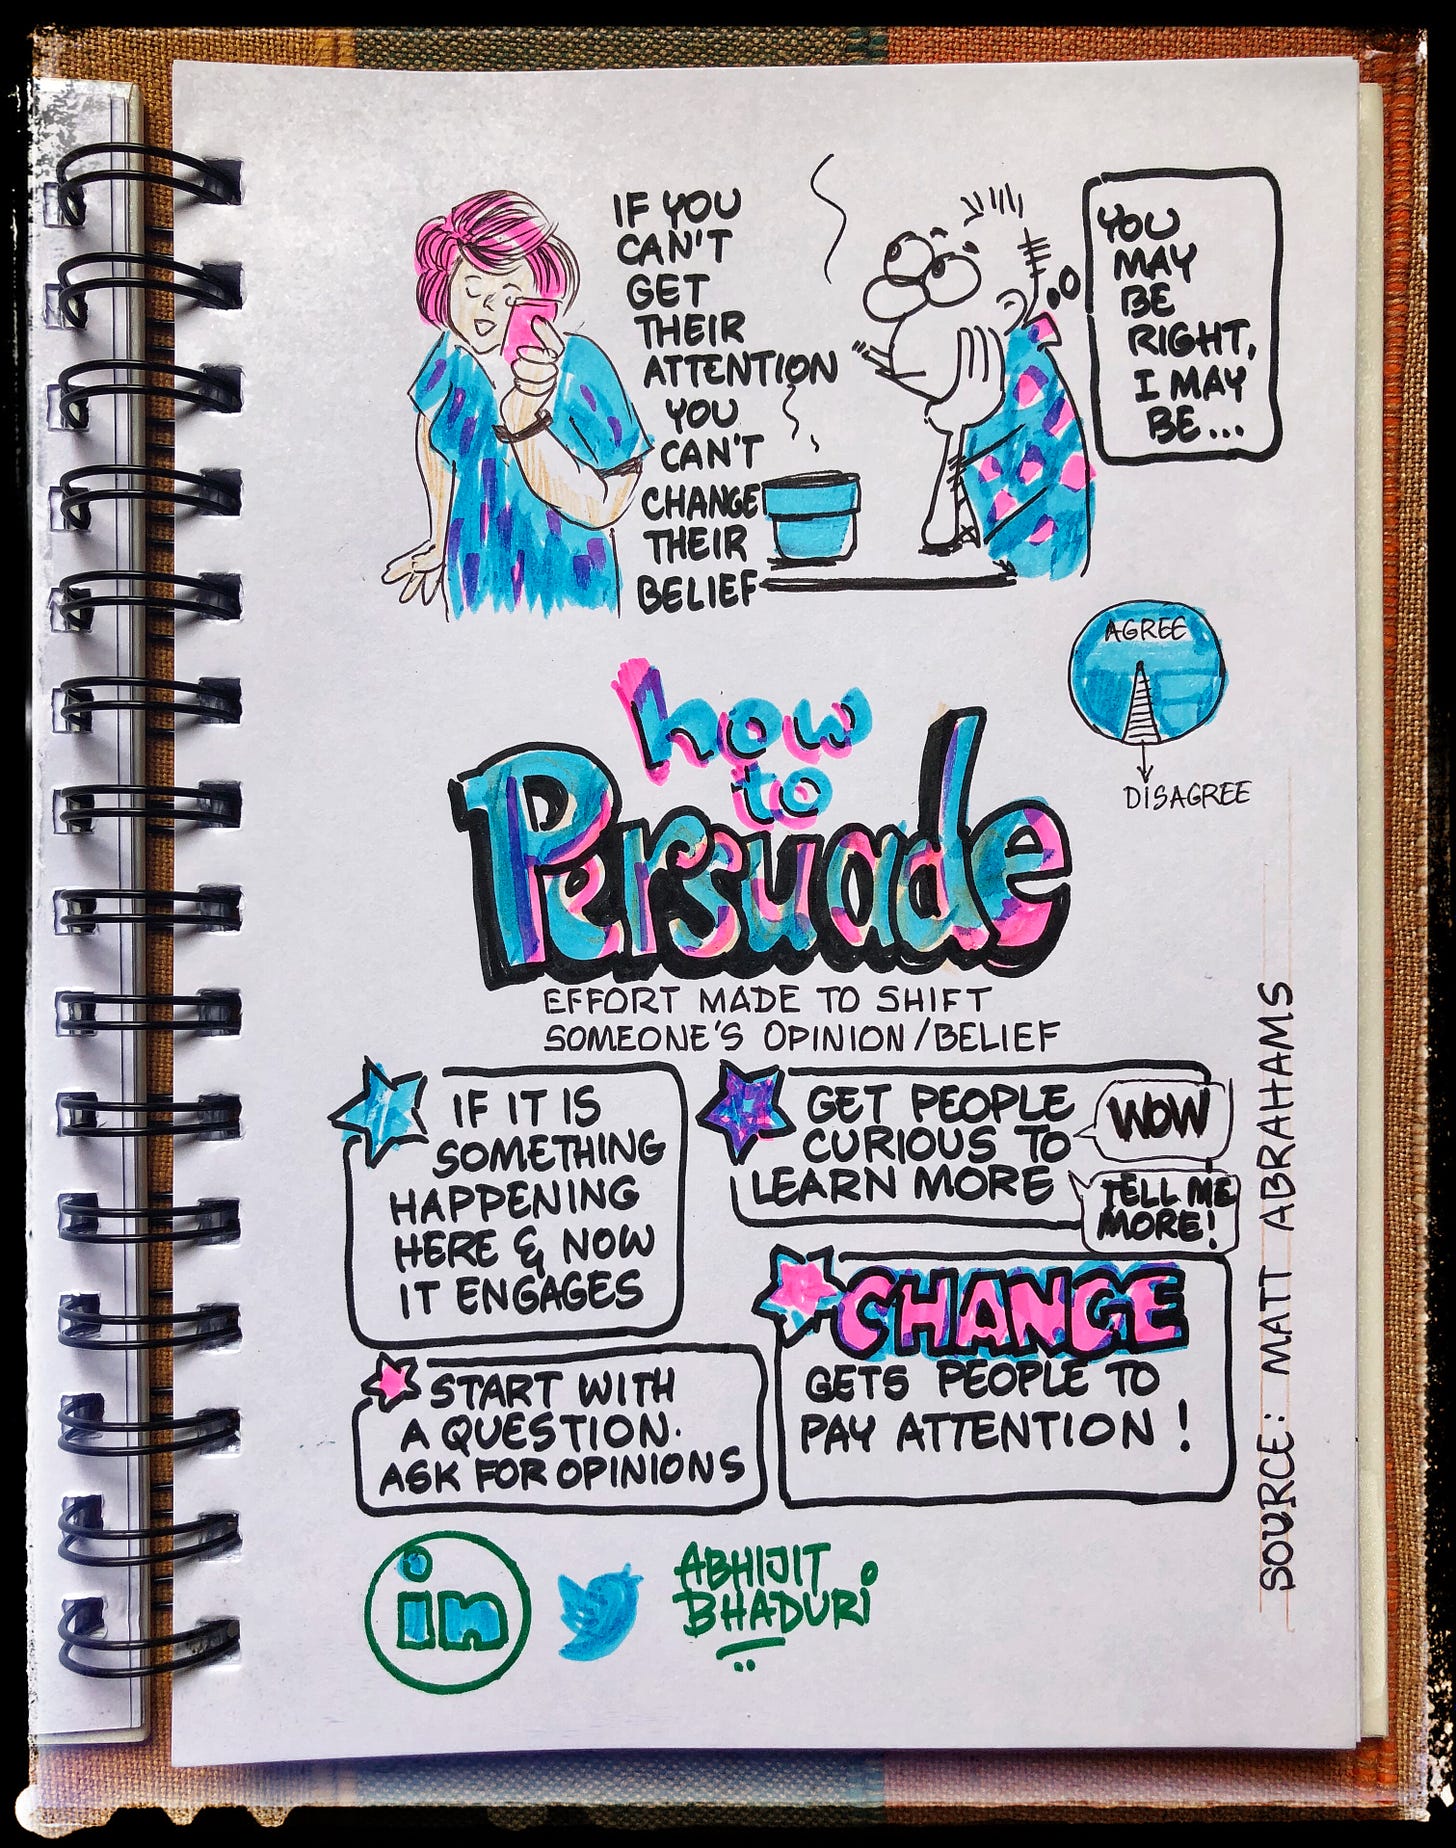 IF YOU
CAN'T
GET
THEIR
ATTENTION
YOU
CAN'T
CHANGE
THEIR
BELIEF
YOU
MAY
BE
RIGHT,
I MAY
BE...
AGREE
DISAGREE
how
to
Persuade
EFFORT MADE TO SHIFT
SOMEONE'S OPINION/BELIEF
IF IT IS
SOMETHING
HAPPENING
HERE & NOW
IT ENGAGES
GET PEOPLE
CURIOUS TO
LEARN MORE
WOW
TELL ME
MORE!
START WITH
A QUESTION.
ASK FOR OPINIONS
CHANGE
GETS PEOPLE TO
PAY ATTENTION!
SOURCE: MATT ABRAHAMS
in
ABHIJIT
BHADURI